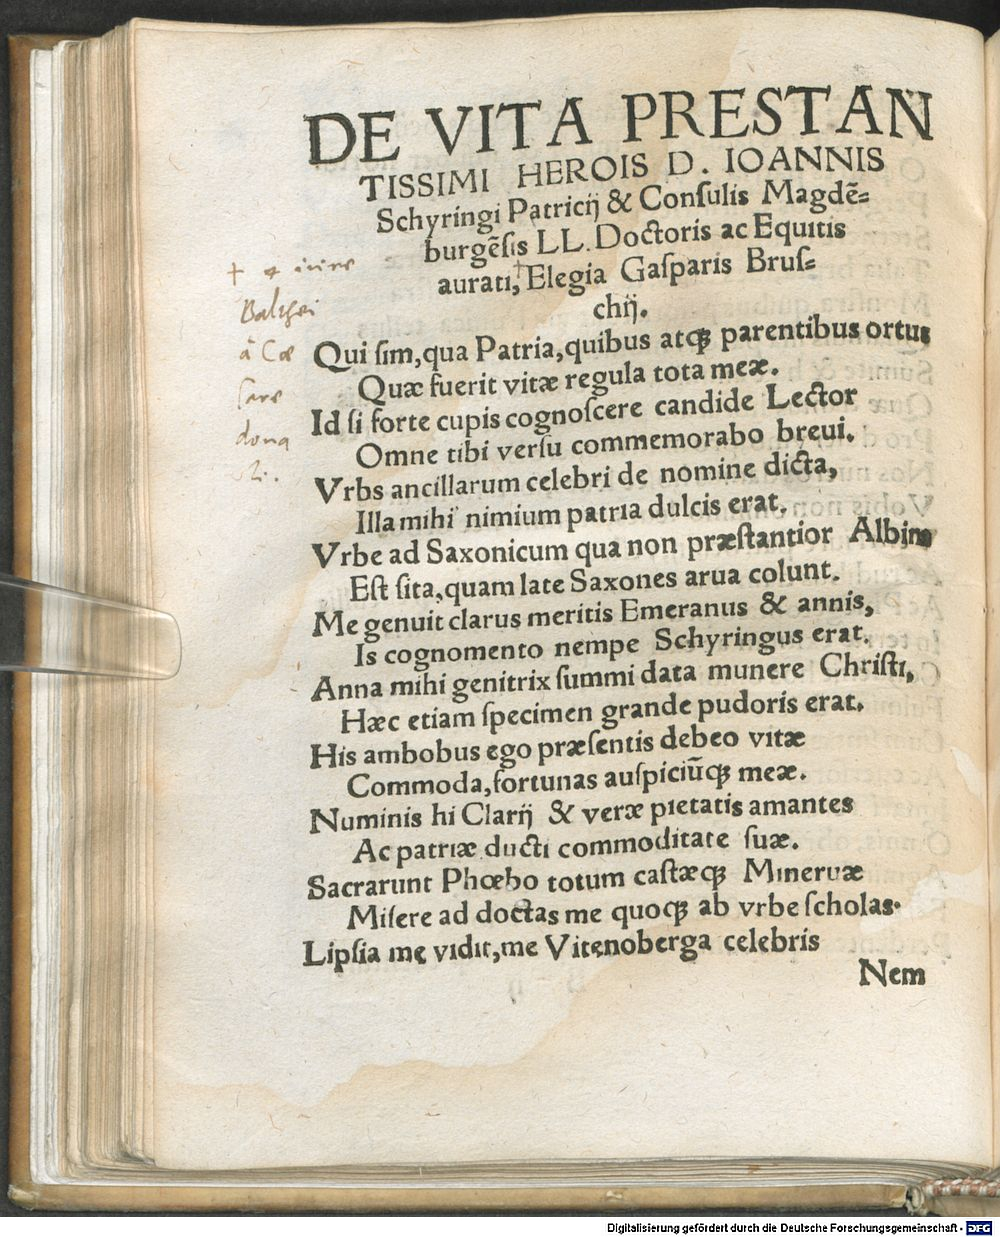 DE VITA PRESTAN
TISSIMI HEROIS D. IOANNIS
Schyringi Patricĳ & Conſulis Magdẽ=
burgẽſis LL. Doctoris ac Equitis
aurati,† Elegia Gaſparis Bruſ=
chĳ.
†
Balthei
â Cæ
ſare
dona
ti.
Qui ſim, qua Patria, quibus atqꝫ parentibus ortus
Quæ fuerit vitæ regula tota meæ.
Id ſi forte cupis cognoſcere candide Lector
Omne tibi verſu commemorabo breui.
Vrbs ancillarum celebri de nomine dicta,
Illa mihi nimium patria dulcis erat.
Vrbe ad Saxonicum qua non præſtantior Albim
Eſt ſita, quam late Saxones arua colunt.
Me genuit clarus meritis Emeranus & annis,
Is cognomento nempe Schyringus erat.
Anna mihi genitrix ſummi data munere Chriſti,
Hæc etiam ſpecimen grande pudoris erat.
His ambobus ego præſentis debeo vitæ
Commoda, fortunas auſpiciũqꝫ meæ.
Numinis hi Clarĳ & veræ pietatis amantes
Ac patriæ ducti commoditate ſuæ.
Sacrarunt Phœbo totum caſtæqꝫ Mineruæ
Miſere ad doctas me quoqꝫ ab vrbe ſcholas.
Lipſia me vidit, me Vitenoberga celebris
Nem
Digitalisierung gefördert durch die Deutsche Forschungsgemeinschaft - DFG